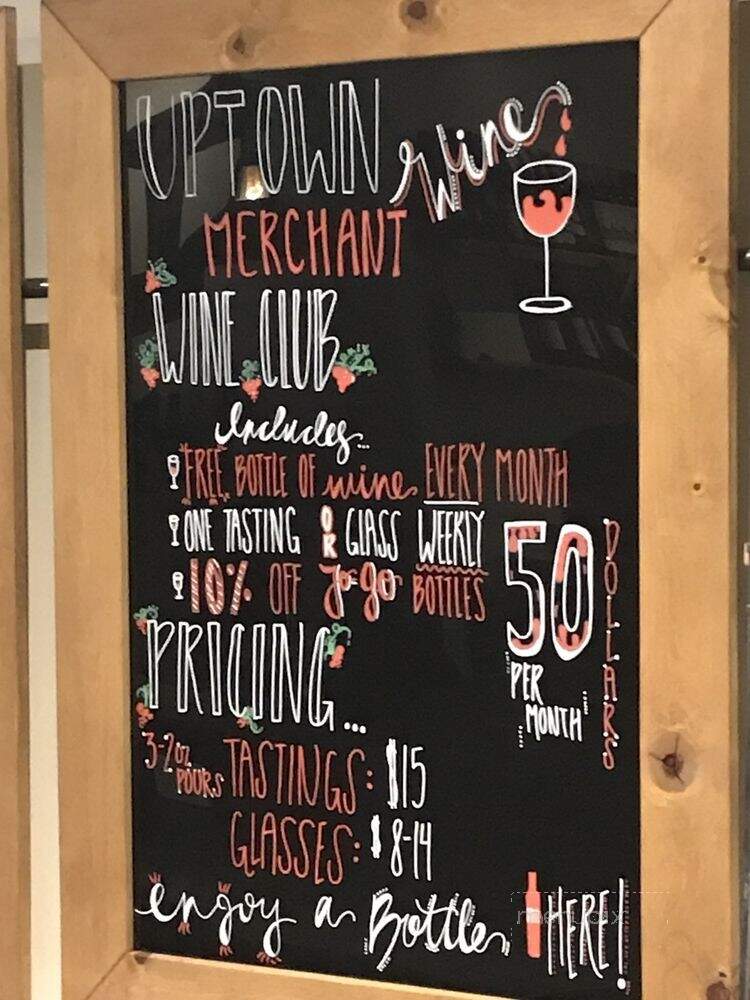 UPTOWN Wine
MERCHANT
WINE CLUB
Includes...
FREE BOTTLE OF wine EVERY MONTH
ONE TASTING OR GLASS WEEKLY
10% OFF To-go BOTTLES
50 DOLLARS
PER
MONTH
PRICING...
3-2oz POURS TASTINGS: $15
GLASSES: $8-14
enjoy a Bottle HERE!
menupix